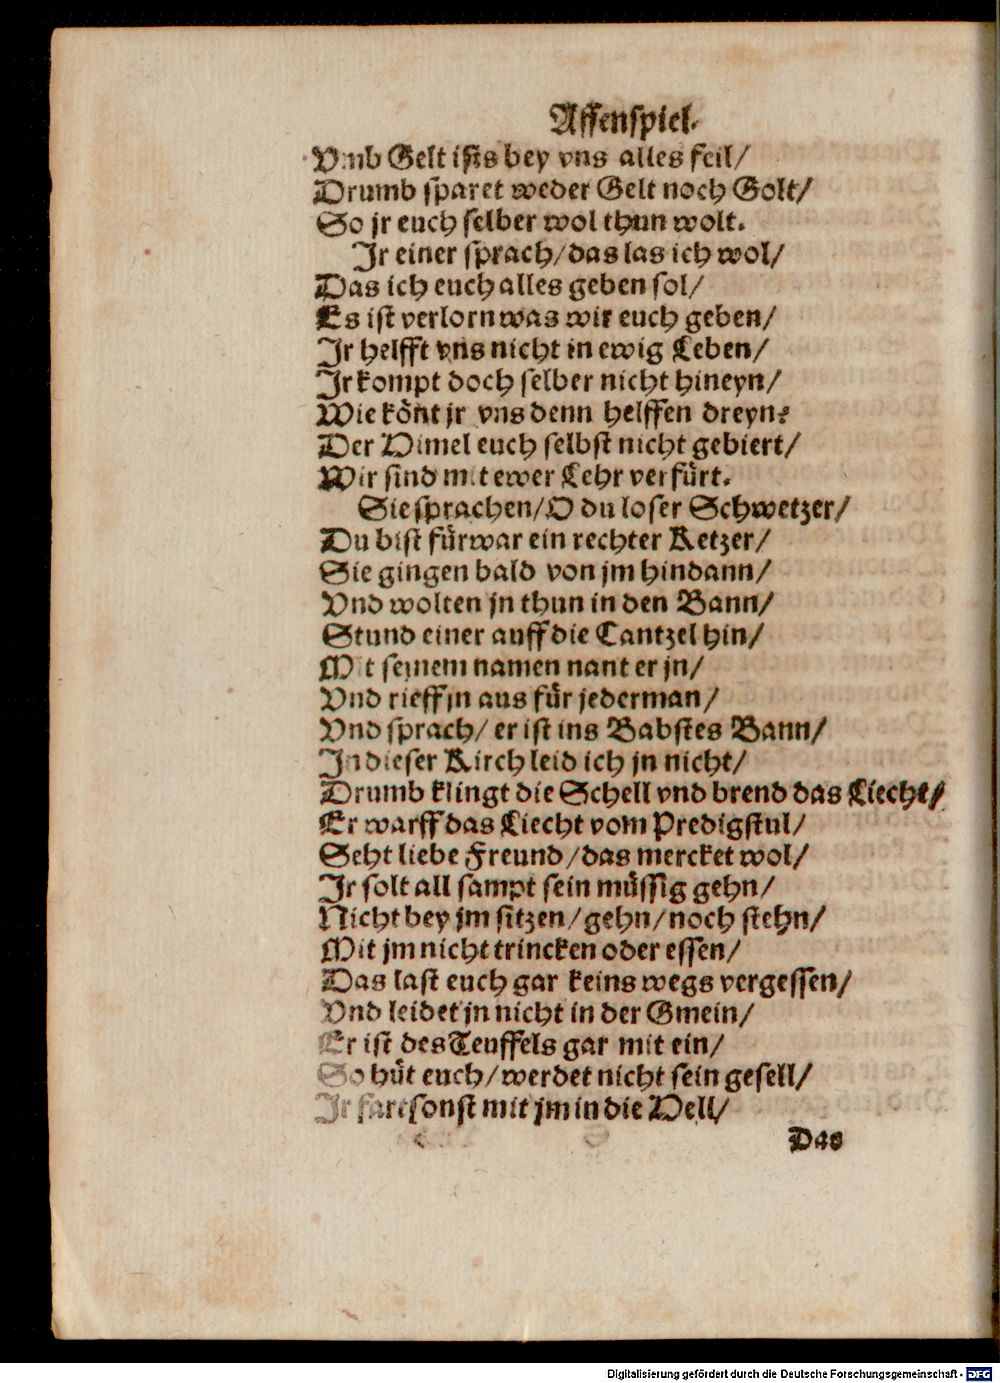 Affenspiel.
Vmb Gelt ists bey vns alles feil/
Drumb sparet weder Gelt noch Golt/
So jr euch selber wol thun wolt.
Jr einer sprach/das las ich wol/
Das ich euch alles geben sol/
Es ist verlorn was wir euch geben/
Jr helfft vns nicht in ewig Leben/
Jr kompt doch selber nicht hineyn/
Wie könt jr vns denn helffen dreyn?
Der Himel euch selbst nicht gebiert/
Wir sind mit ewer Lehr verfürt.
Sie sprachen/O du loser Schwetzer/
Du bist fürwar ein rechter Ketzer/
Sie gingen bald von jm hindann/
Vnd wolten jn thun in den Bann/
Stund einer auff die Cantzel hin/
Mit seinem namen nant er jn/
Vnd rieff jn aus für jederman/
Vnd sprach/ er ist ins Babstes Bann/
In dieser Kirch leid ich jn nicht/
Drumb klingt die Schell vnd brend das Liecht/
Er warff das Liecht vom Predigstul/
Seht liebe Freund/das mercket wol/
Jr solt all sampt sein müssig gehn/
Nicht bey jm sitzen/gehn/noch stehn/
Mit jm nicht trincken oder essen/
Das last euch gar keins wegs vergessen/
Vnd leidet jn nicht in der Gmein/
Er ist des Teuffels gar mit ein/
So hüt euch/werdet nicht sein gesell/
Jr fart sonst mit jm in die Hell/
Das
Digitalisierung gefördert durch die Deutsche Forschungsgemeinschaft - DFG